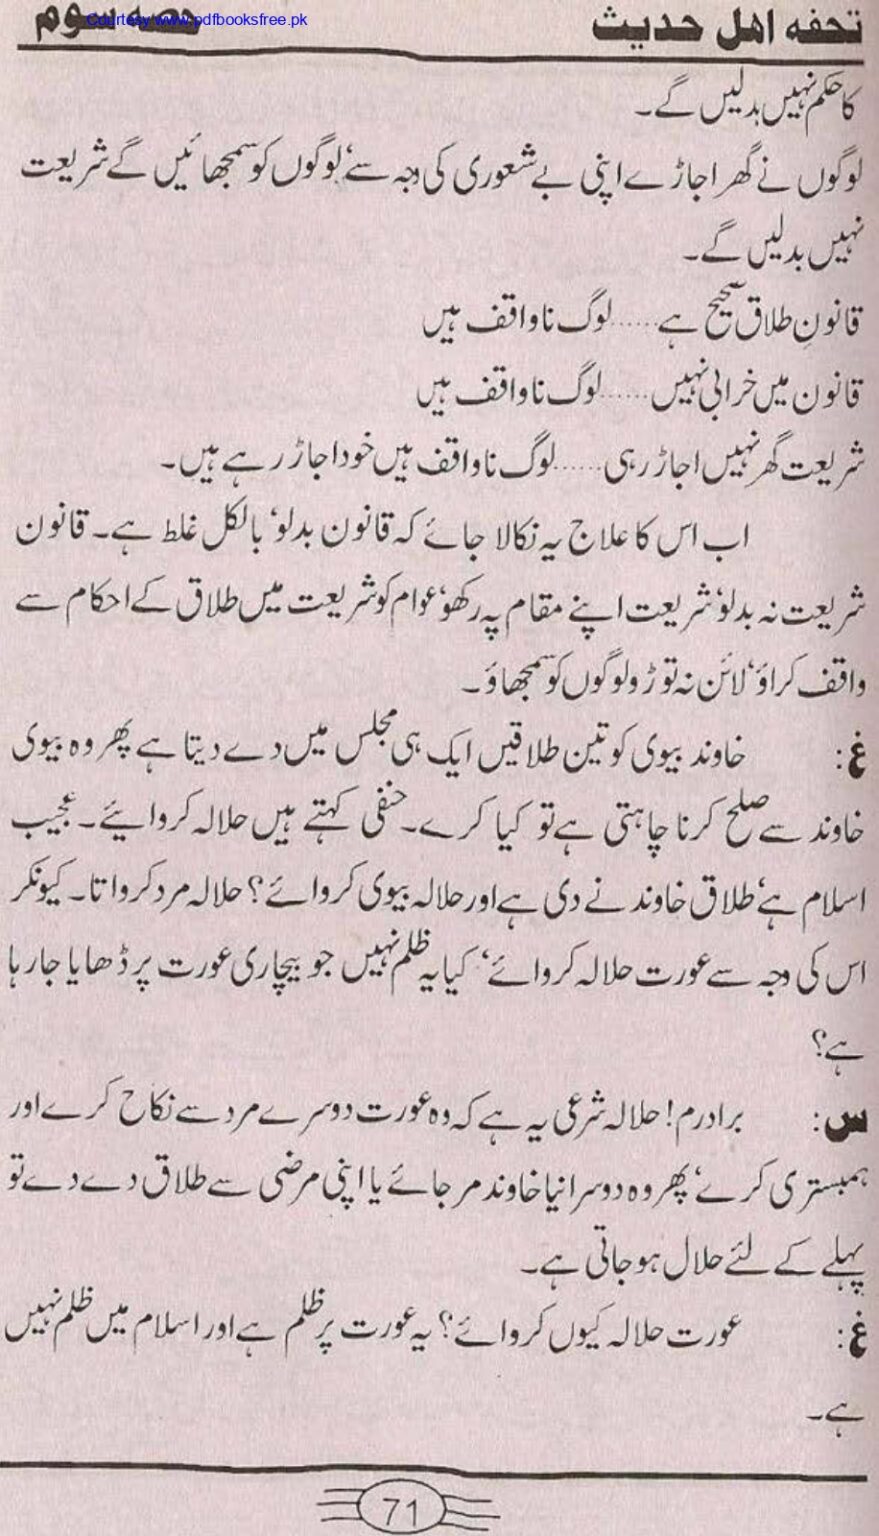 تحفہ اهل حدیث
حصہ سوم
Courtesy www.pdfbooksfree.pk
کا حکم نہیں بدلیں گے۔
لوگوں نے گھر اجاڑے اپنی بے شعوری کی وجہ سے‘ لوگوں کو سمجھائیں گے شریعت
نہیں بدلیں گے۔
قانونِ طلاق صحیح ہے ..... لوگ ناواقف ہیں
قانون میں خرابی نہیں ..... لوگ ناواقف ہیں
شریعت گھر نہیں اجاڑ رہی ..... لوگ ناواقف ہیں خود اجاڑ رہے ہیں۔
اب اس کا علاج یہ نکالا جائے کہ قانون بدلو‘ بالکل غلط ہے۔ قانون
شریعت نہ بدلو‘ شریعت اپنے مقام پہ رکھو‘ عوام کو شریعت میں طلاق کے احکام سے
واقف کراؤ‘ لائن نہ توڑو لوگوں کو سمجھاؤ۔
غ: خاوند بیوی کو تین طلاقیں ایک ہی مجلس میں دے دیتا ہے پھر وہ بیوی
خاوند سے صلح کرنا چاہتی ہے تو کیا کرے۔ حنفی کہتے ہیں حلالہ کروائیے۔ عجیب
اسلام ہے‘ طلاق خاوند نے دی ہے اور حلالہ بیوی کروائے؟ حلالہ مرد کرواتا۔ کیونکر
اس کی وجہ سے عورت حلالہ کروائے‘ کیا یہ ظلم نہیں جو بیچاری عورت پر ڈھایا جا رہا
ہے؟
س: برادرم! حلالہ شرعی یہ ہے کہ وہ عورت دوسرے مرد سے نکاح کرے اور
ہمبستری کرے‘ پھر وہ دوسرا نیا خاوند مر جائے یا اپنی مرضی سے طلاق دے دے تو
پہلے کے لئے حلال ہو جاتی ہے۔
غ: عورت حلالہ کیوں کروائے؟ یہ عورت پر ظلم ہے اور اسلام میں ظلم نہیں
ہے۔
71